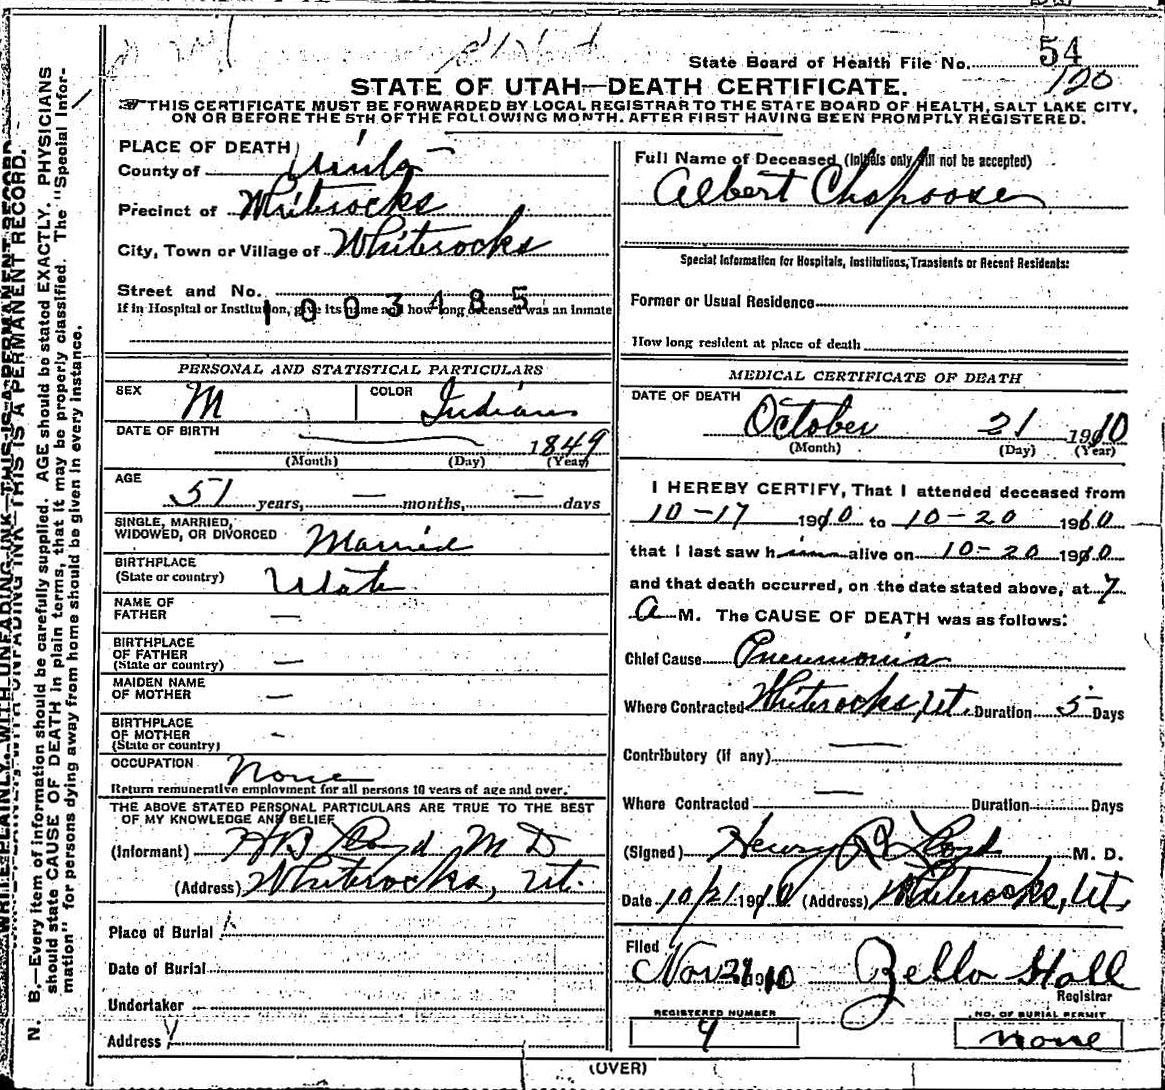 State Board of Health File No. 54
120
STATE OF UTAH—DEATH CERTIFICATE.
THIS CERTIFICATE MUST BE FORWARDED BY LOCAL REGISTRAR TO THE STATE BOARD OF HEALTH, SALT LAKE CITY,
ON OR BEFORE THE 5TH OF THE FOLLOWING MONTH. AFTER FIRST HAVING BEEN PROMPTLY REGISTERED.
PLACE OF DEATH
County of Uinta
Precinct of Whiterocks
City, Town or Village of Whiterocks
Street and No.
1003485
If in Hospital or Institution, give its name and how long deceased was an inmate
Full Name of Deceased (Initials only will not be accepted)
Albert Chapoose
Special Information for Hospitals, Institutions, Transients or Recent Residents:
Former or Usual Residence
How long resident at place of death
PERSONAL AND STATISTICAL PARTICULARS
SEX M COLOR Indian
DATE OF BIRTH 1849
(Month) (Day) (Year)
AGE
51 years, — months, — days
SINGLE, MARRIED,
WIDOWED, OR DIVORCED Married
BIRTHPLACE
(State or country) Utah
NAME OF
FATHER —
BIRTHPLACE
OF FATHER
(State or country) —
MAIDEN NAME
OF MOTHER —
BIRTHPLACE
OF MOTHER -
(State or country)
OCCUPATION None
Return remunerative employment for all persons 10 years of age and over.
THE ABOVE STATED PERSONAL PARTICULARS ARE TRUE TO THE BEST
OF MY KNOWLEDGE AND BELIEF
(Informant) HB Lloyd M D
(Address) Whiterocks, Ut.
Place of Burial
Date of Burial
Undertaker
Address
MEDICAL CERTIFICATE OF DEATH
DATE OF DEATH
October 21 1910
(Month) (Day) (Year)
I HEREBY CERTIFY, That I attended deceased from
10-17 1910 to 10-20 1910
that I last saw him alive on 10-20 1910
and that death occurred, on the date stated above, at 7
a M. The CAUSE OF DEATH was as follows:
Chief Cause Pneumonia
Where Contracted Whiterocks, Ut. Duration 5 Days
Contributory (if any) —
Where Contracted — Duration Days
(Signed) Henry B Lloyd M. D.
Date 10/21 1910 (Address) Whiterocks, Ut.
Filed
Nov 29 1910 Zello Hall
Registrar
REGISTERED NUMBER
4
NO. OF BURIAL PERMIT
none
(OVER)
WRITE PLAINLY, WITH UNFADING INK—THIS IS A PERMANENT RECORD.
N. B.—Every item of information should be carefully supplied. AGE should be stated EXACTLY. PHYSICIANS
should state CAUSE OF DEATH in plain terms, that it may be properly classified. The "Special Infor-
mation" for persons dying away from home should be given in every instance.